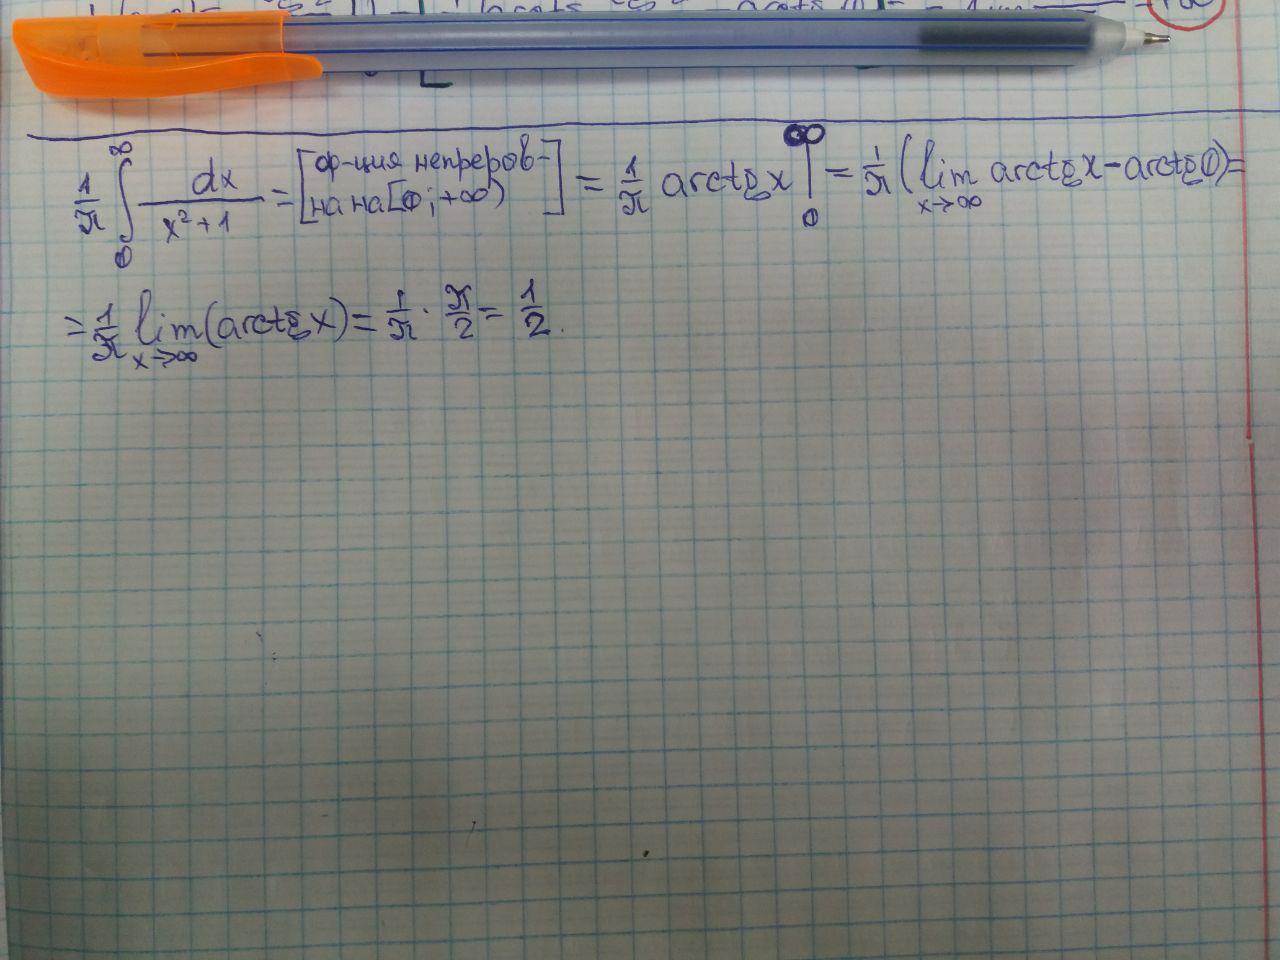 1/π ∫₀^∞ dx/(x²+1) = [ф-ция непреров-на на [0;+∞)] = 1/π arctg x |₀^∞ = 1/π (lim x→∞ arctg x - arctg 0) =
= 1/π lim x→∞ (arctg x) = 1/π · π/2 = 1/2.